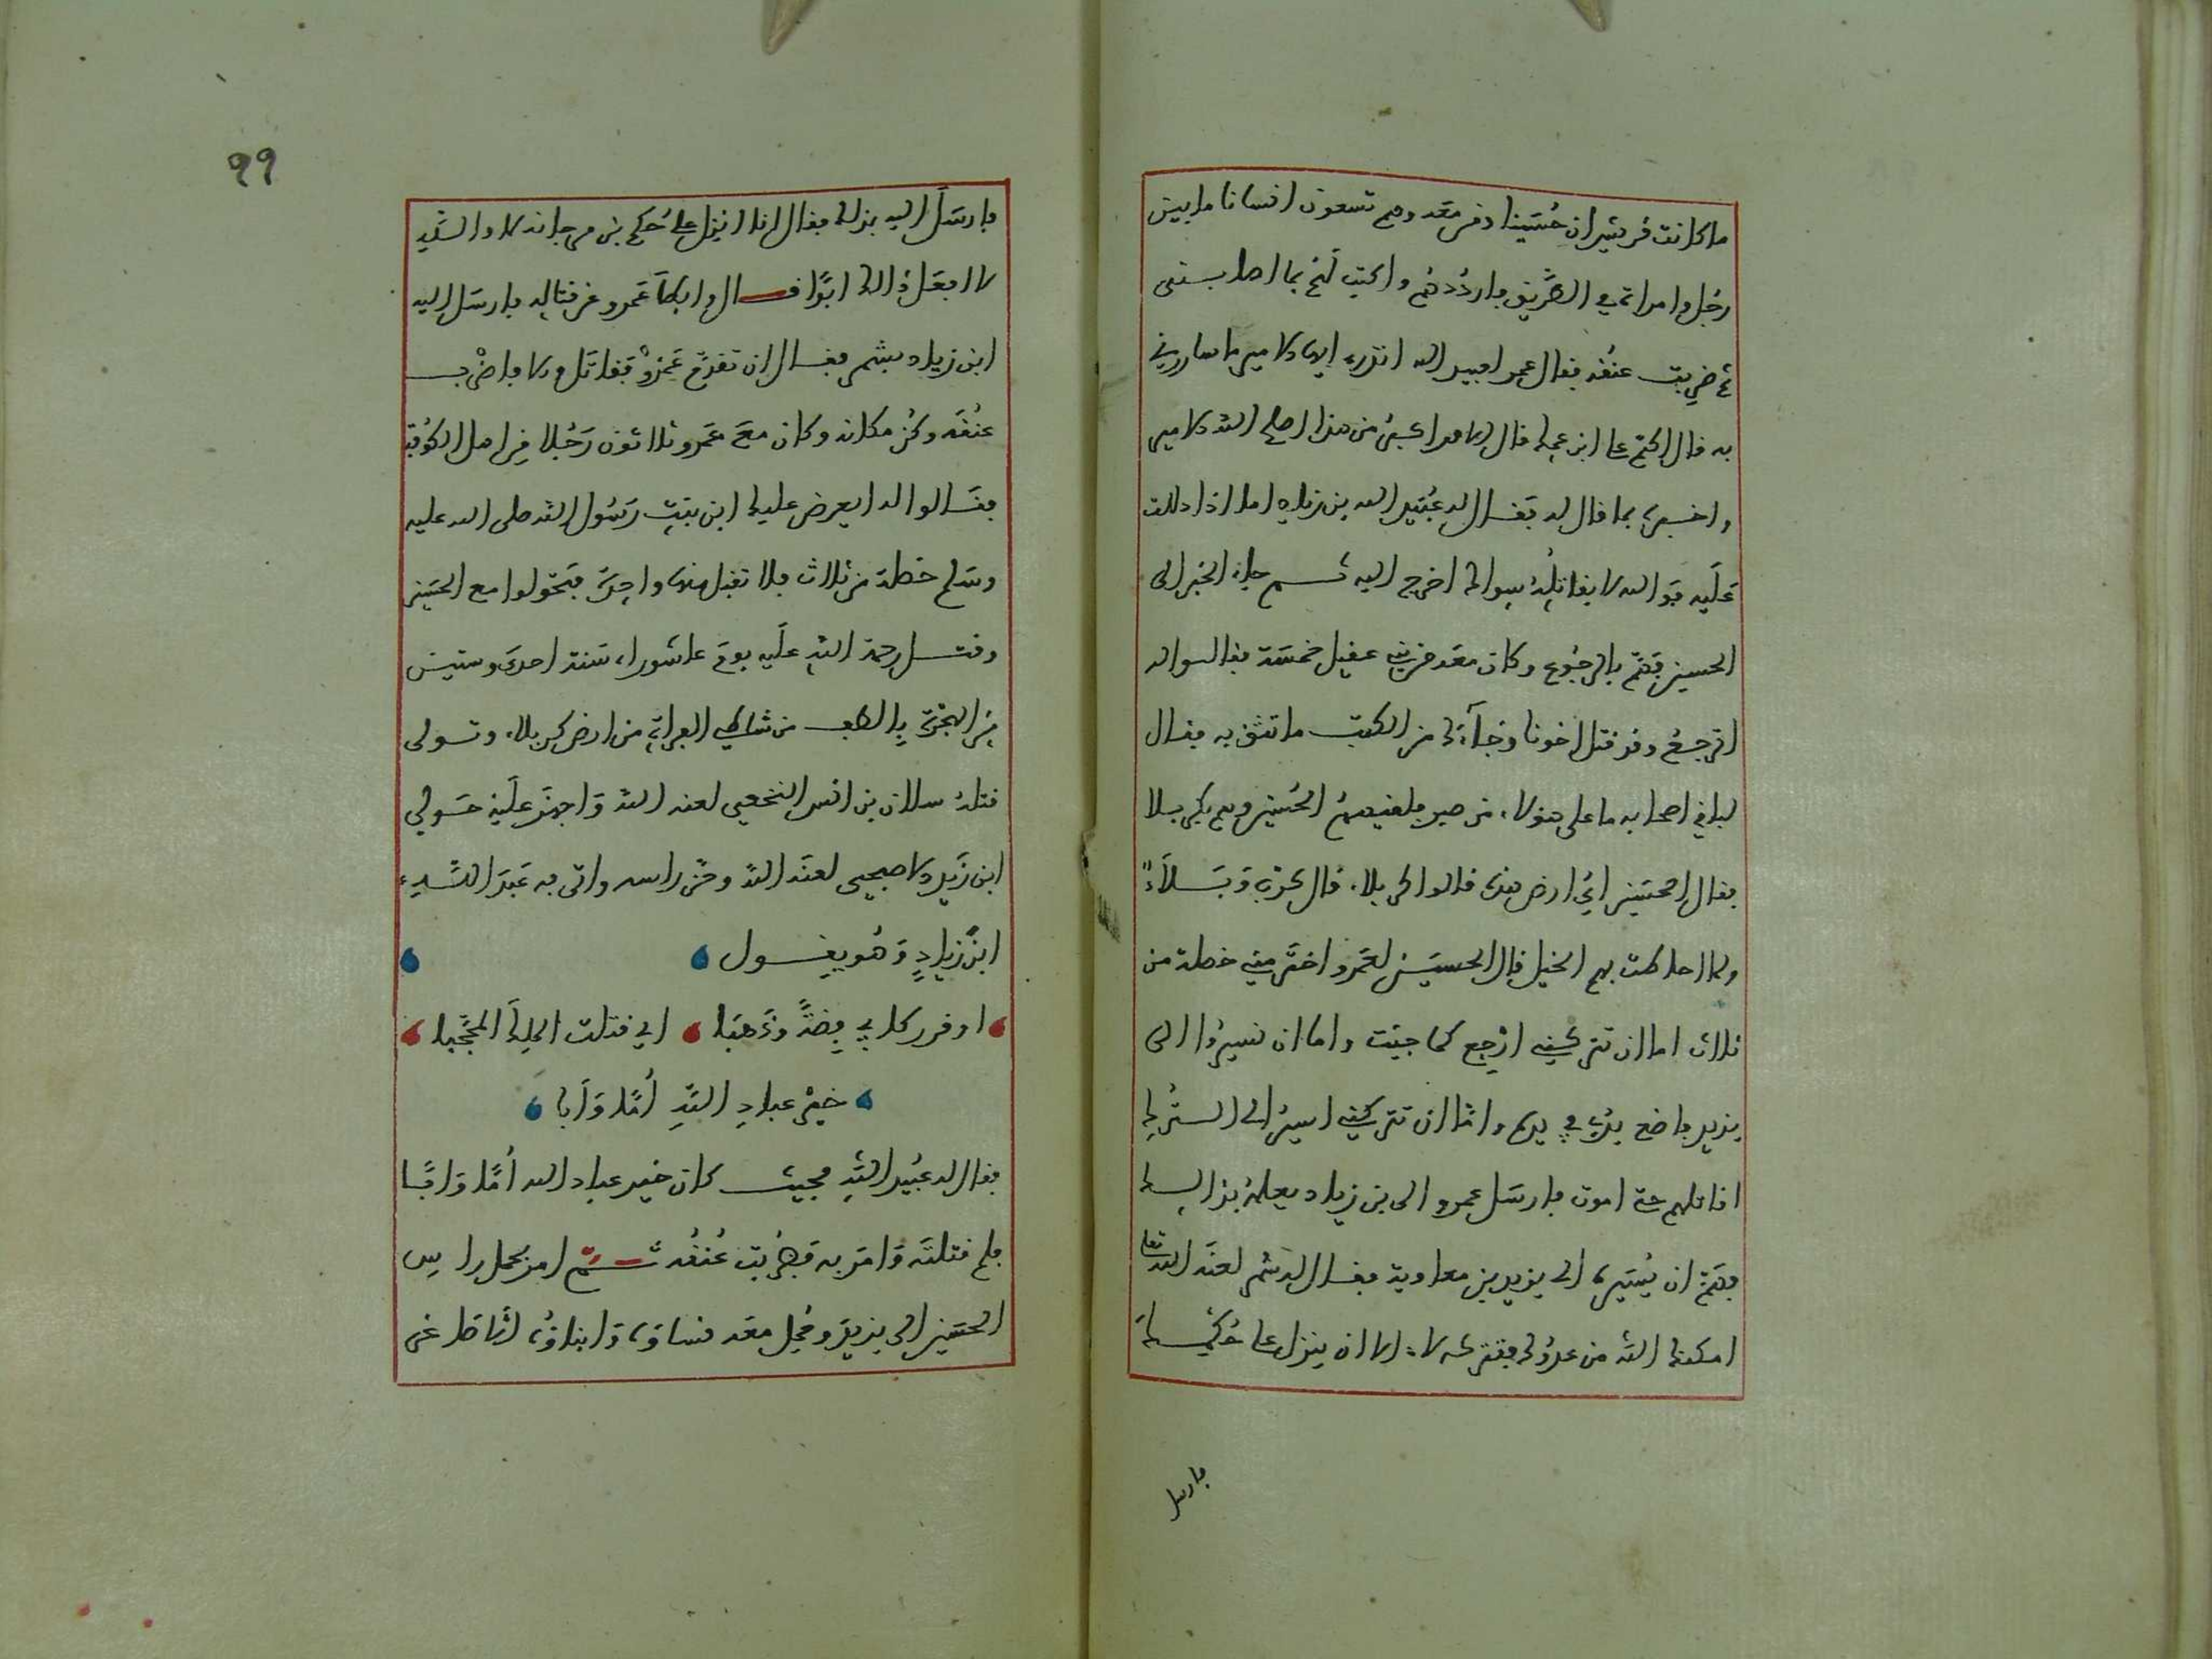 ما كانت قريش ان حسينا ومن معه وهم تسعون انسانا ما بين
رجل وامراة في الطريق فارددهم واكتب لهم بما اصابني
ثم ضربت عنقه فقال عمر لعبيد الله اتدري ايها الامير ما سارني
به قال اكتم على ابن عمك قال الامر اكبر من هذا اصلح الله الامير
واخبره بما قال له فقال له عبيد الله بن زياد اما اذا دللت
عليه فوالله لا يقاتله سواك اخرج اليه ثم جاء الخبر الى
الحسين فهم بالرجوع وكان معه من بني عقيل خمسة فقالوا له
اترجع وقد قتل اخونا وجاءك من الكتب ما تثق به فقال
لباقي اصحابه ما على هؤلاء من صبر فلقيهم الحسين وهم بكربلا
فقال الحسين اي ارض هذه قالوا كربلاء قال كرب وبلاء
ولما احاطت بهم الخيل قال الحسين لعمرو اختر مني خصلة من
ثلاث اما ان تتركني ارجع كما جيت واما ان تسيروا الى
يزيد فاضع يدي في يده واما ان تتركني اسير الى الترك
اقاتلهم حتى اموت فارسل عمرو الى بن زياد يعلمه بذالك
فهم ان يسيره الى يزيد بن معاوية فقال له شمر لعنه الله تعالى
امكنك الله من عدوك فتتركه لا الا ان ينزل على حكمك
فارسل
99
فارسل اليه بذلك فقال انا انزل على حكم بن مرجانة لا والله
لا افعل ذالك ابدا قال وابطا عمرو عن قتاله فارسل اليه
ابن زياد بشمر فقال ان تقدم عمرو فقاتل والا فاضرب
عنقه وكن مكانه وكان مع عمرو ثلاثون رجلا من اهل الكوفة
فقالوا له ايعرض عليك ابن بنت رسول الله صلى الله عليه
وسلم خصلة من ثلاث فلا تقبل منها واحدة فتحولوا مع الحسين
وقتل رحمة الله عليه يوم عاشوراء سنة احدى وستين
من الهجرة بالطف من شاطي الفرات من ارض كربلاء وتولى
قتله سنان بن انس النخعي لعنه الله واجهز عليه خولي
ابن زيد الاصبحي لعنه الله وحز راسه واتى به عبد الله
ابن زياد وهو يقول
اوقر ركابي فضة وذهبا اني قتلت الملك المحجبا
خير عباد الله اما وابا
فقال له عبيد الله فحيث كان خير عباد الله اما وابا
فلم قتلته وامر به فضربت عنقه ثم امر بحمل راس
الحسين الى يزيد وحمل معه نساوه وابناوه